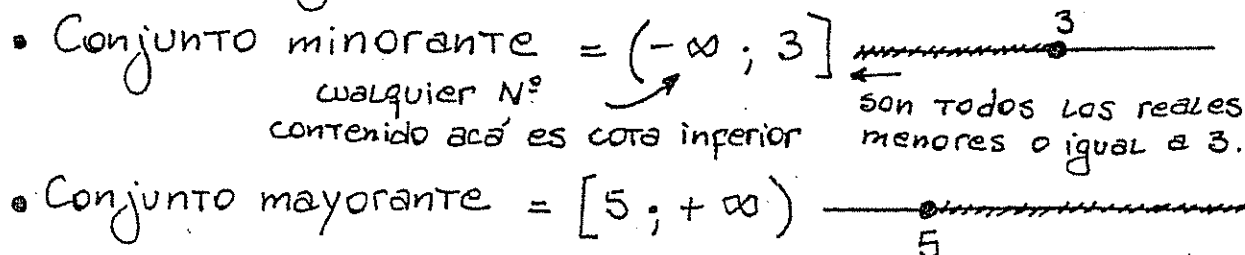 • Conjunto minorante = (-∞ ; 3]
3
cualquier Nº
contenido acá es cota inferior
son todos los reales
menores o igual a 3.
• Conjunto mayorante = [5 ; +∞)
5